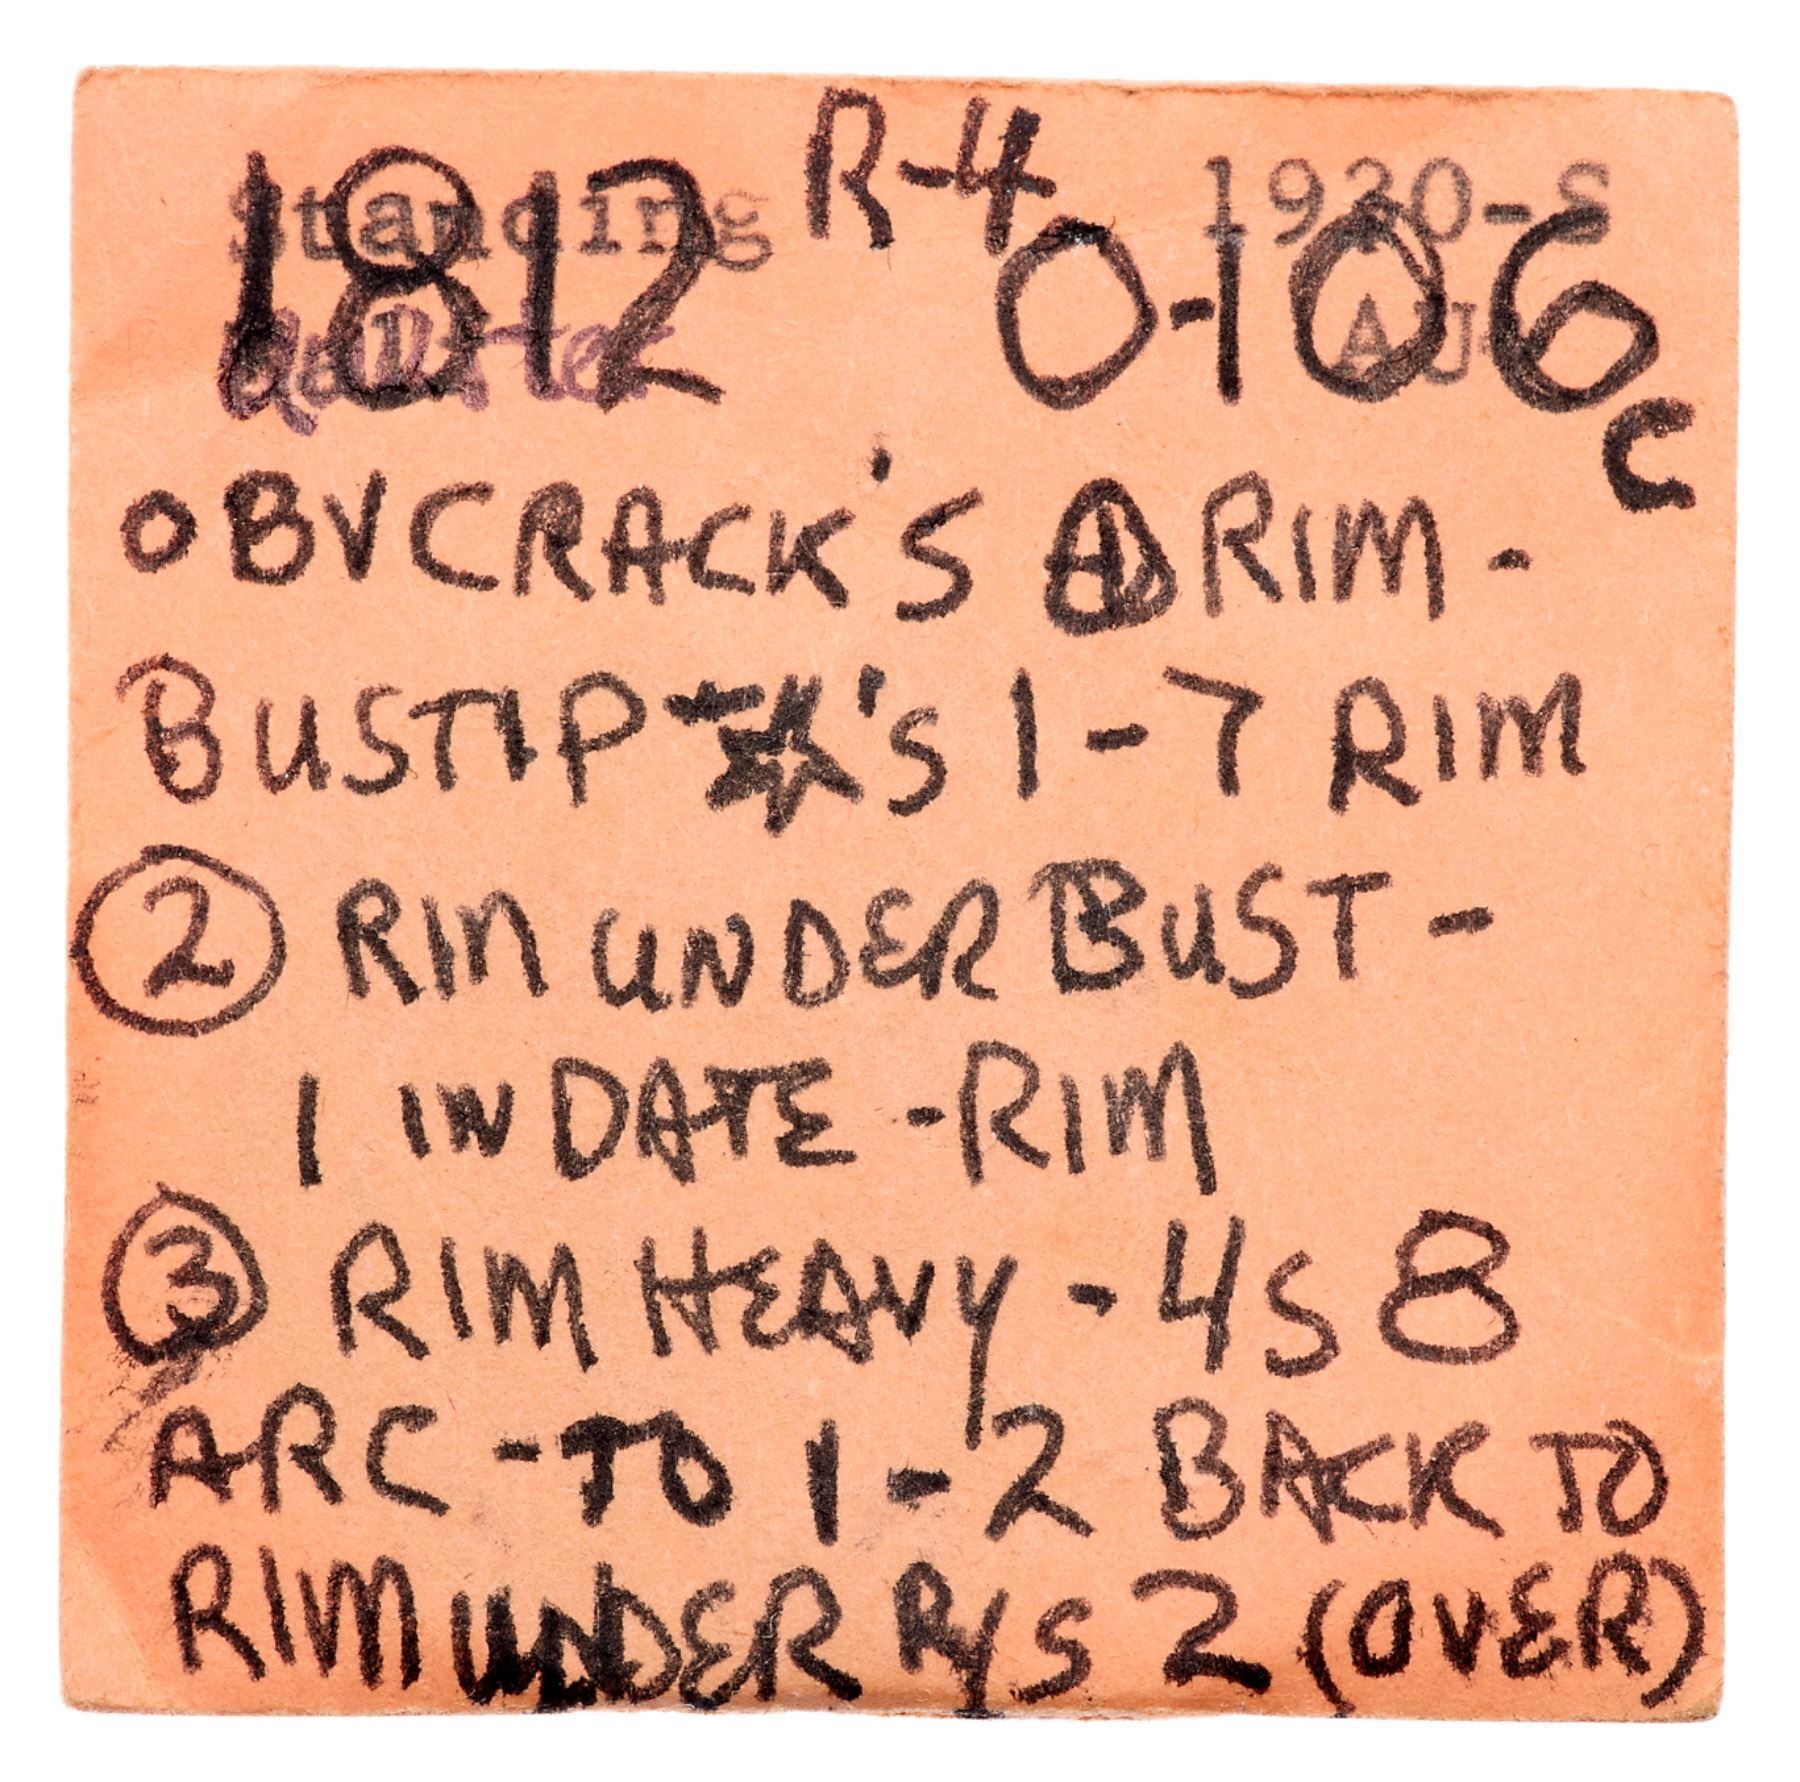 R-4
Standing 1920-S
1812 O-106c
Quarter AU
OBV CRACK'S RIM -
BUSTIP - ★'S 1-7 RIM
② RIM UNDER BUST -
1 IN DATE - RIM
③ RIM HEAVY - 4S 8
ARC - TO 1-2 BACK TO
RIM UNDER R/S 2 (OVER)